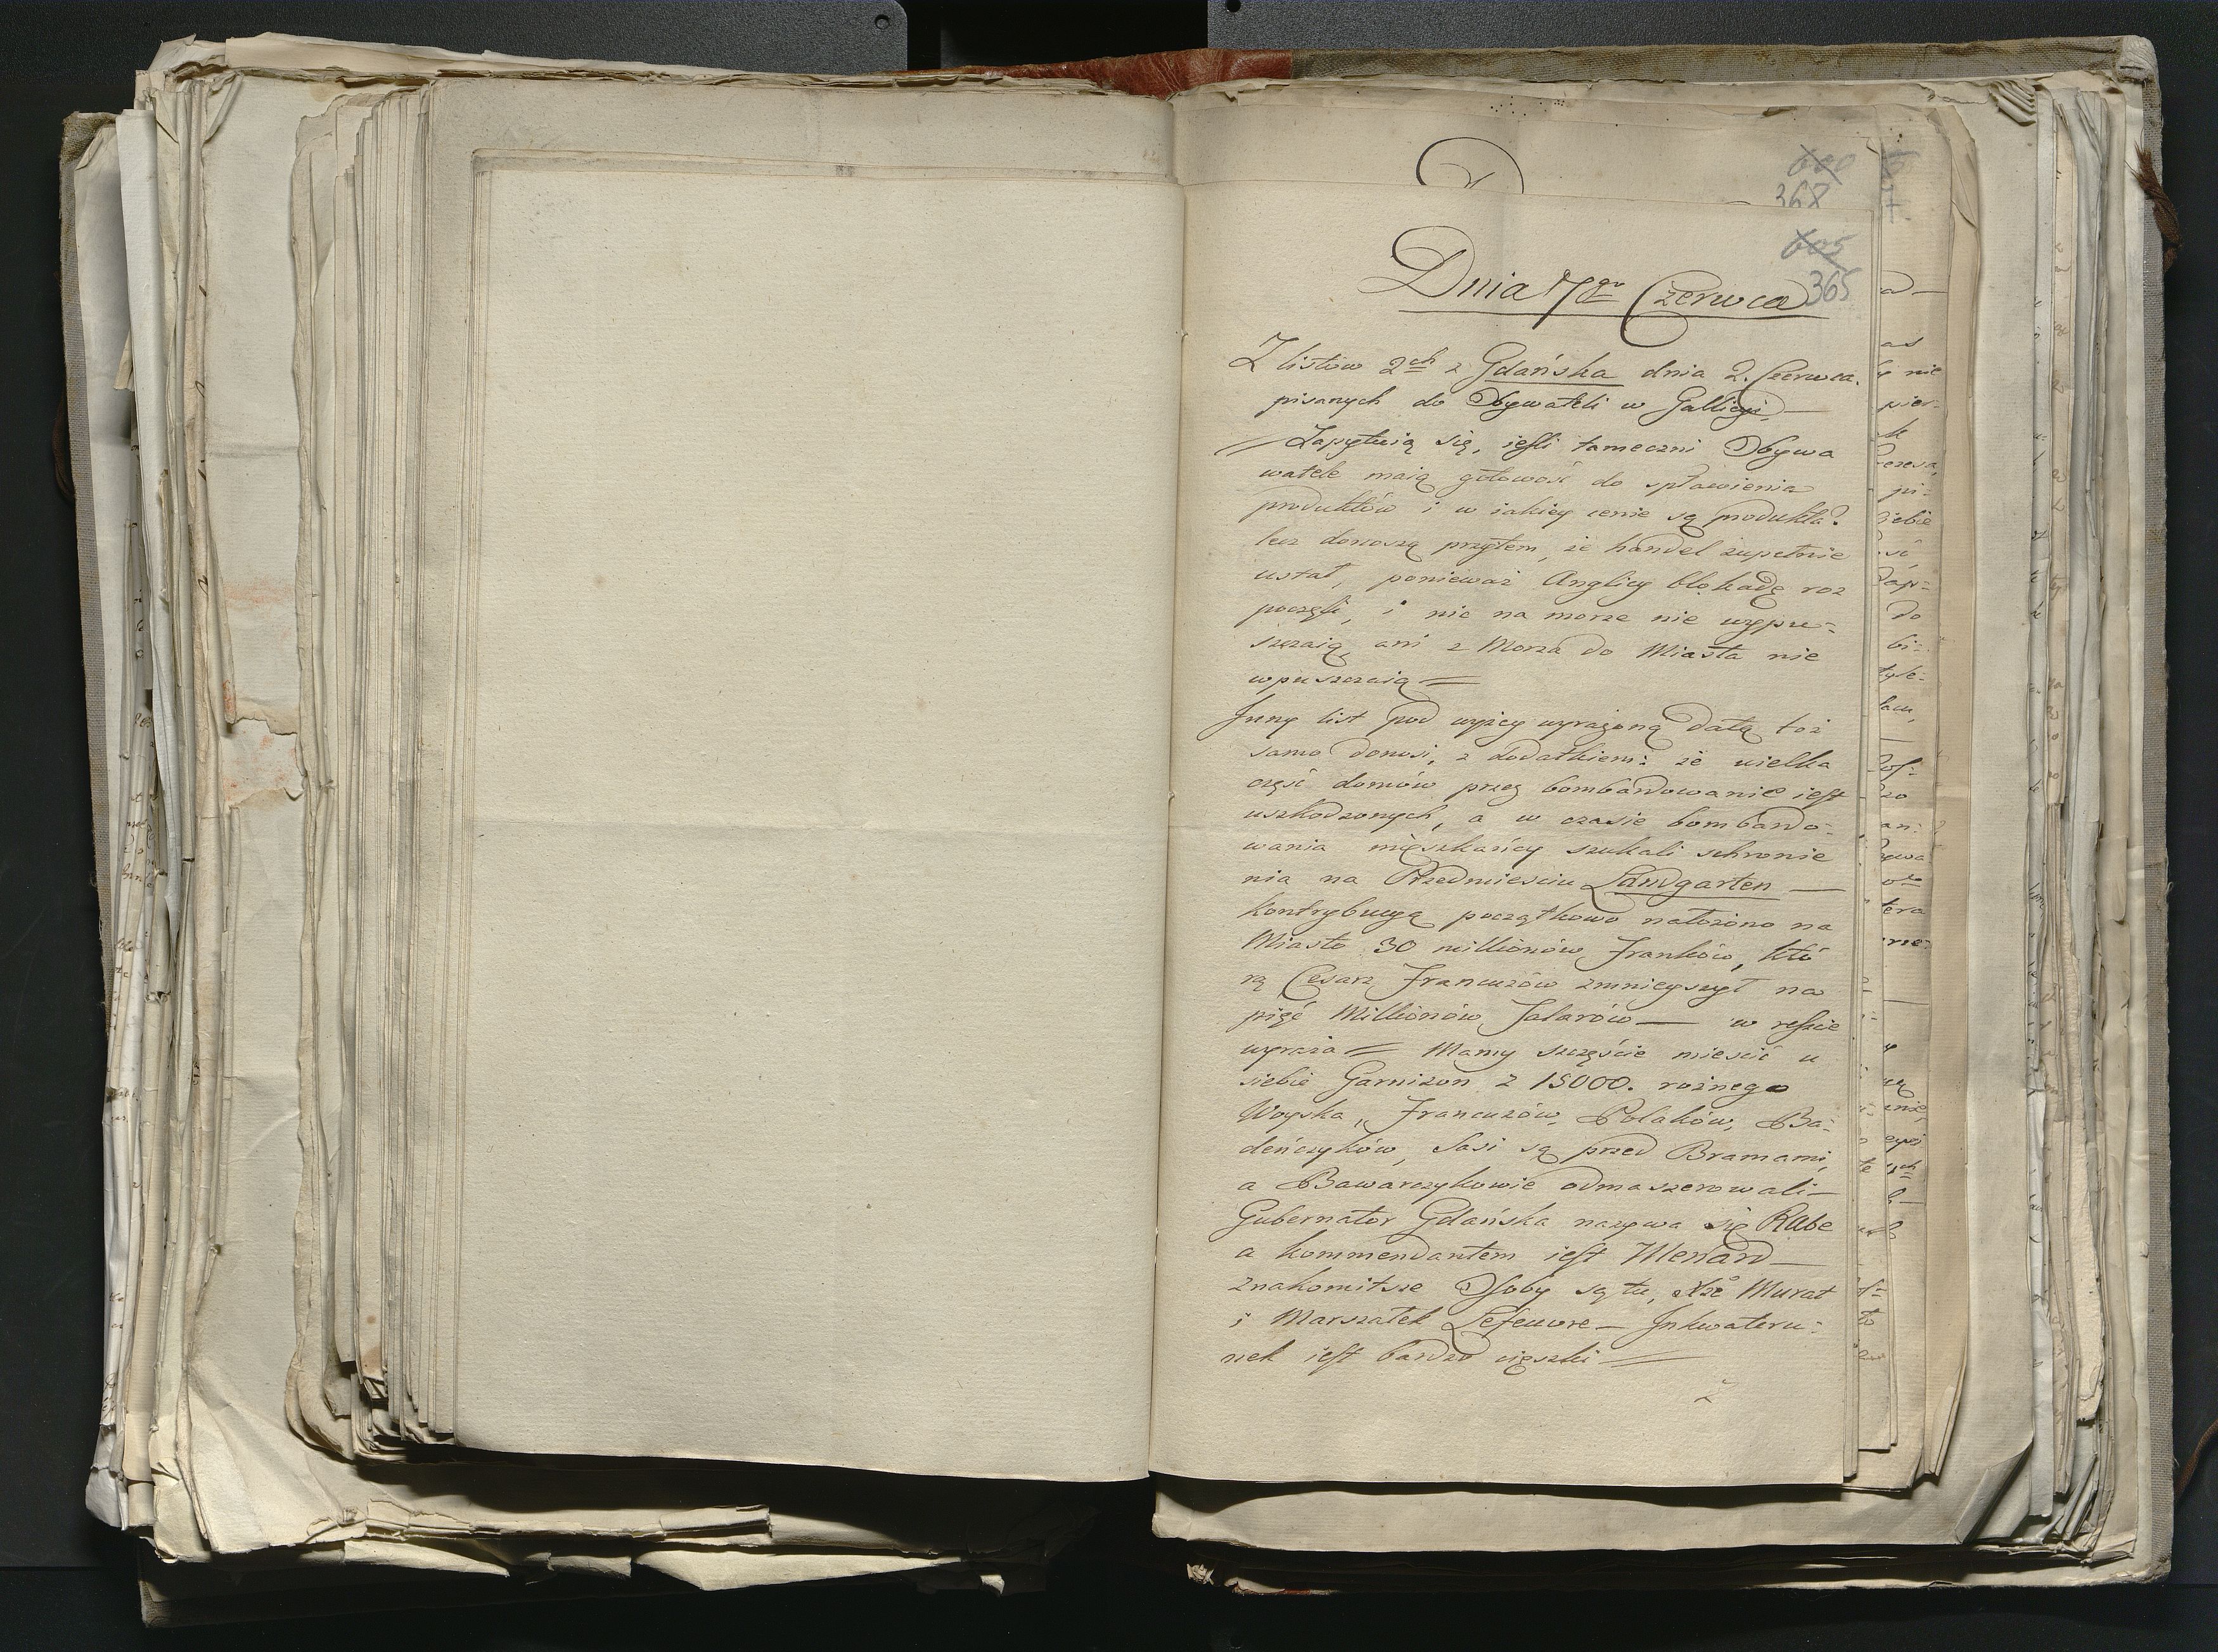 600
368
605
365
Dnia 17go Czerwca
Z listów 2ch z Gdańska dnia 2. Czerwca.
pisanych do Obywateli w Gallicyi —
Zapytuią się, iesli tameczni Obywa
watele maią gotowość do spławienia
produktów i w iakiey cenie są produkta?
lecz donoszą przytem, że handel zupełnie
ustał, ponieważ Anglicy blokadę roz
poczęli, i nic na morze nie wypu=
szczaią, ani z Morza do Miasta nie
wpuszczaią =
Inny list pod wyżey wyrażoną datą toż
samo donosi, z dodatkiem: że wielka
część domów przez bombardowanie iest
uszkodzonych, a w czasie bombardo=
wania mięszkańcy szukali schronie
nia na Przedmiesciu Landgarten —
kontrybucyą początkowo nałożono na
Miasto 30 millionów Franków, któ
rą Cesarz Francuzów zmnieyszył na
pięć Millionów Talarów — w reszcie
wyraża = Mamy szczęście miescić u
siebie Garnizon z 15000. rożnego
Woyska, Francuzów, Polaków, Ba=
deńczyków, Sasi są przed Bramami,
a Bawarczykowie odmaszerowali —
Gubernator Gdańska nazywa się Rabe
a kommendantem iest Menard —
znakomitsze Osoby są tu, Xże Murat
i Marszałek Lefeuvre — Inkwateru=
nek iest bardzo cięszki =